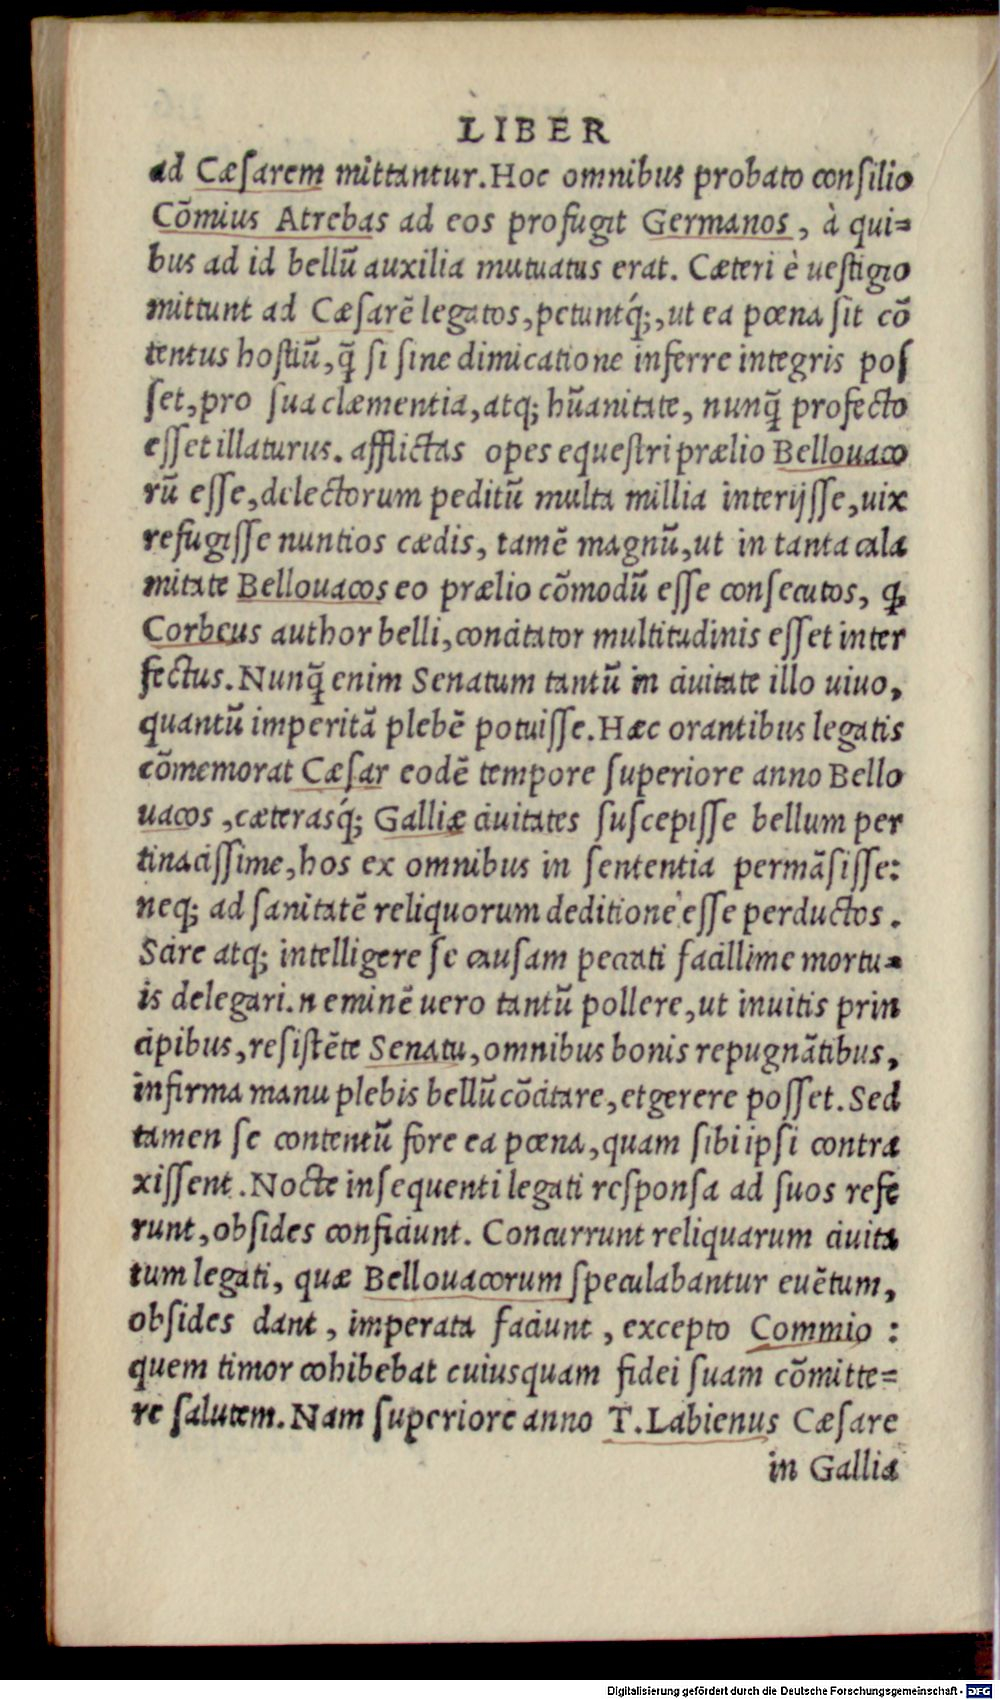 LIBER
ad Cæsarem mittantur. Hoc omnibus probato consilio
Cõmius Atrebas ad eos profugit Germanos, à qui=
bus ad id bellũ auxilia mutuatus erat. Cæteri è uestigio
mittunt ad Cæsarẽ legatos, petuntq́;, ut ea pœna sit cõ
tentus hostiũ, q̃ si sine dimicatione inferre integris pos
set, pro sua clæmentia, atq; hũanitate, nunq̃ profecto
esset illaturus. afflictas opes equestri prælio Bellouaco
rũ esse, delectorum peditũ multa millia interijsse, uix
refugisse nuntios cædis, tamẽ magnũ, ut in tanta cala
mitate Bellouacos eo prælio cõmodũ esse consecutos, ꝙ
Corbeus author belli, concitator multitudinis esset inter
fectus. Nunq̃ enim Senatum tantũ in ciuitate illo uiuo,
quantũ imperitã plebẽ potuisse. Hæc orantibus legatis
cõmemorat Cæsar eodẽ tempore superiore anno Bello
uacos, cæterasq́; Galliæ ciuitates suscepisse bellum per
tinacissime, hos ex omnibus in sententia permãsisse:
neq; ad sanitatẽ reliquorum deditione esse perductos.
Scire atq; intelligere se causam peccati facillime mortu=
is delegari. neminẽ uero tantũ pollere, ut inuitis prin
cipibus, resistẽte Senatu, omnibus bonis repugnãtibus,
infirma manu plebis bellũ cõcitare, et gerere posset. Sed
tamen se contentũ fore ea pœna, quam sibi ipsi contra
xissent. Nocte insequenti legati responsa ad suos refe
runt, obsides conficiunt. Concurrunt reliquarum ciuita
tum legati, quæ Bellouacorum speculabantur euẽtum,
obsides dant, imperata faciunt, excepto Commio:
quem timor cohibebat cuiusquam fidei suam cõmitte=
re salutem. Nam superiore anno T. Labienus Cæsare
in Gallia
Digitalisierung gefördert durch die Deutsche Forschungsgemeinschaft - DFG